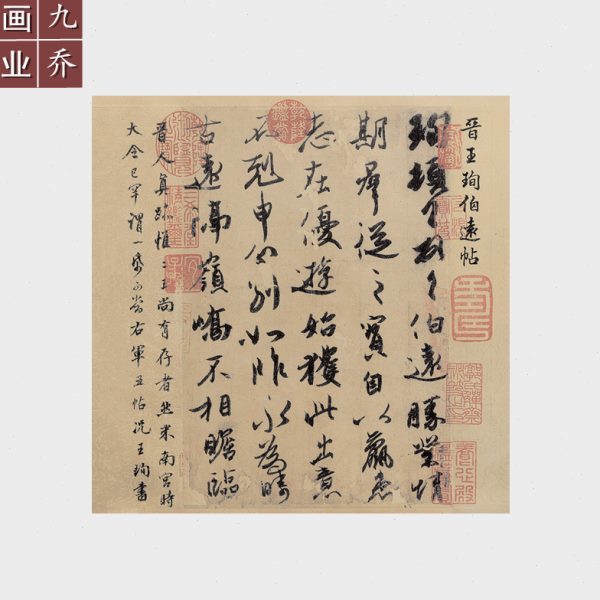 九乔
画业
晋王珣伯远帖
珣頓首頓首伯遠勝業情
期群從之寶自以羸患
志在優遊始獲此出意
不剋申分別如昨永為疇
古遠隔嶺嶠不相瞻臨
晉人真跡惟二王尚有存者然米南宮時
大令已罕謂一紙可當右軍五帖況王珣書